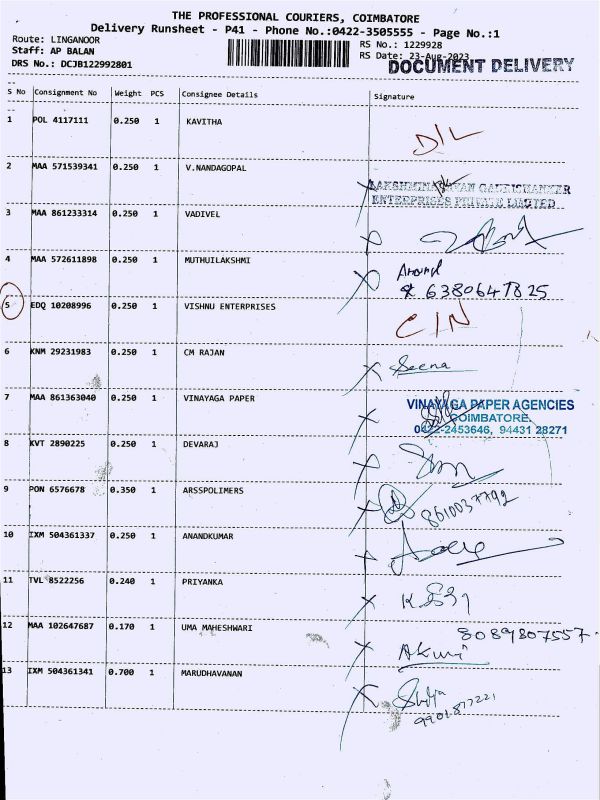 THE PROFESSIONAL COURIERS, COIMBATORE
Delivery Runsheet - P41 - Phone No.:0422-3505555 - Page No.:1
Route: LINGANOOR
RS No.: 1229928
Staff: AP BALAN
RS Date: 23-Aug-2023
DRS No.: DCJB122992801
DOCUMENT DELIVERY
S No Consignment No Weight PCS Consignee Details Signature
1 POL 4117111 0.250 1 KAVITHA D/L
2 MAA 571539341 0.250 1 V.NANDAGOPAL
ENTERPRISES PRIVATE LIMITED
3 MAA 861233314 0.250 1 VADIVEL
4 MAA 572611898 0.250 1 MUTHUILAKSHMI Anand
6380647825
5 EDQ 10208996 0.250 1 VISHNU ENTERPRISES C/N
6 KNM 29231983 0.250 1 CM RAJAN Seena
7 MAA 861363040 0.250 1 VINAYAGA PAPER VINAYAGA PAPER AGENCIES
COIMBATORE.
0422-2453646, 94431 28271
8 KVT 2890225 0.250 1 DEVARAJ
9 PON 6576678 0.350 1 ARSSPOLIMERS 8610037792
10 IXM 504361337 0.250 1 ANANDKUMAR
11 TVL 8522256 0.240 1 PRIYANKA
12 MAA 102647687 0.170 1 UMA MAHESHWARI 8089807557
13 IXM 504361341 0.700 1 MARUDHAVANAN